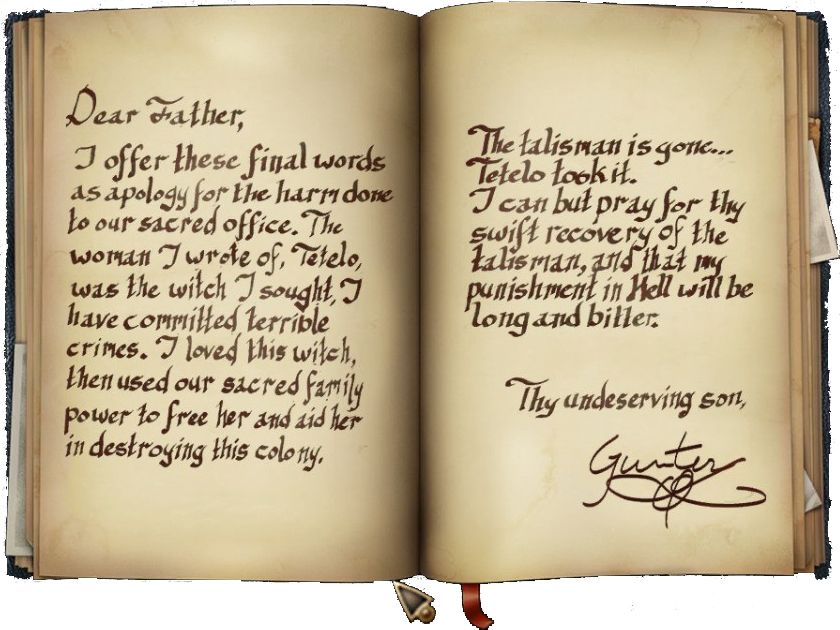 Dear Father,
I offer these final words
as apology for the harm done
to our sacred office. The
woman I wrote of, Tetelo,
was the witch I sought, I
have committed terrible
crimes. I loved this witch,
then used our sacred family
power to free her and aid her
in destroying this colony.
The talisman is gone...
Tetelo took it.
I can but pray for thy
swift recovery of the
talisman, and that my
punishment in Hell will be
long and bitter.
Thy undeserving son,
Gunter